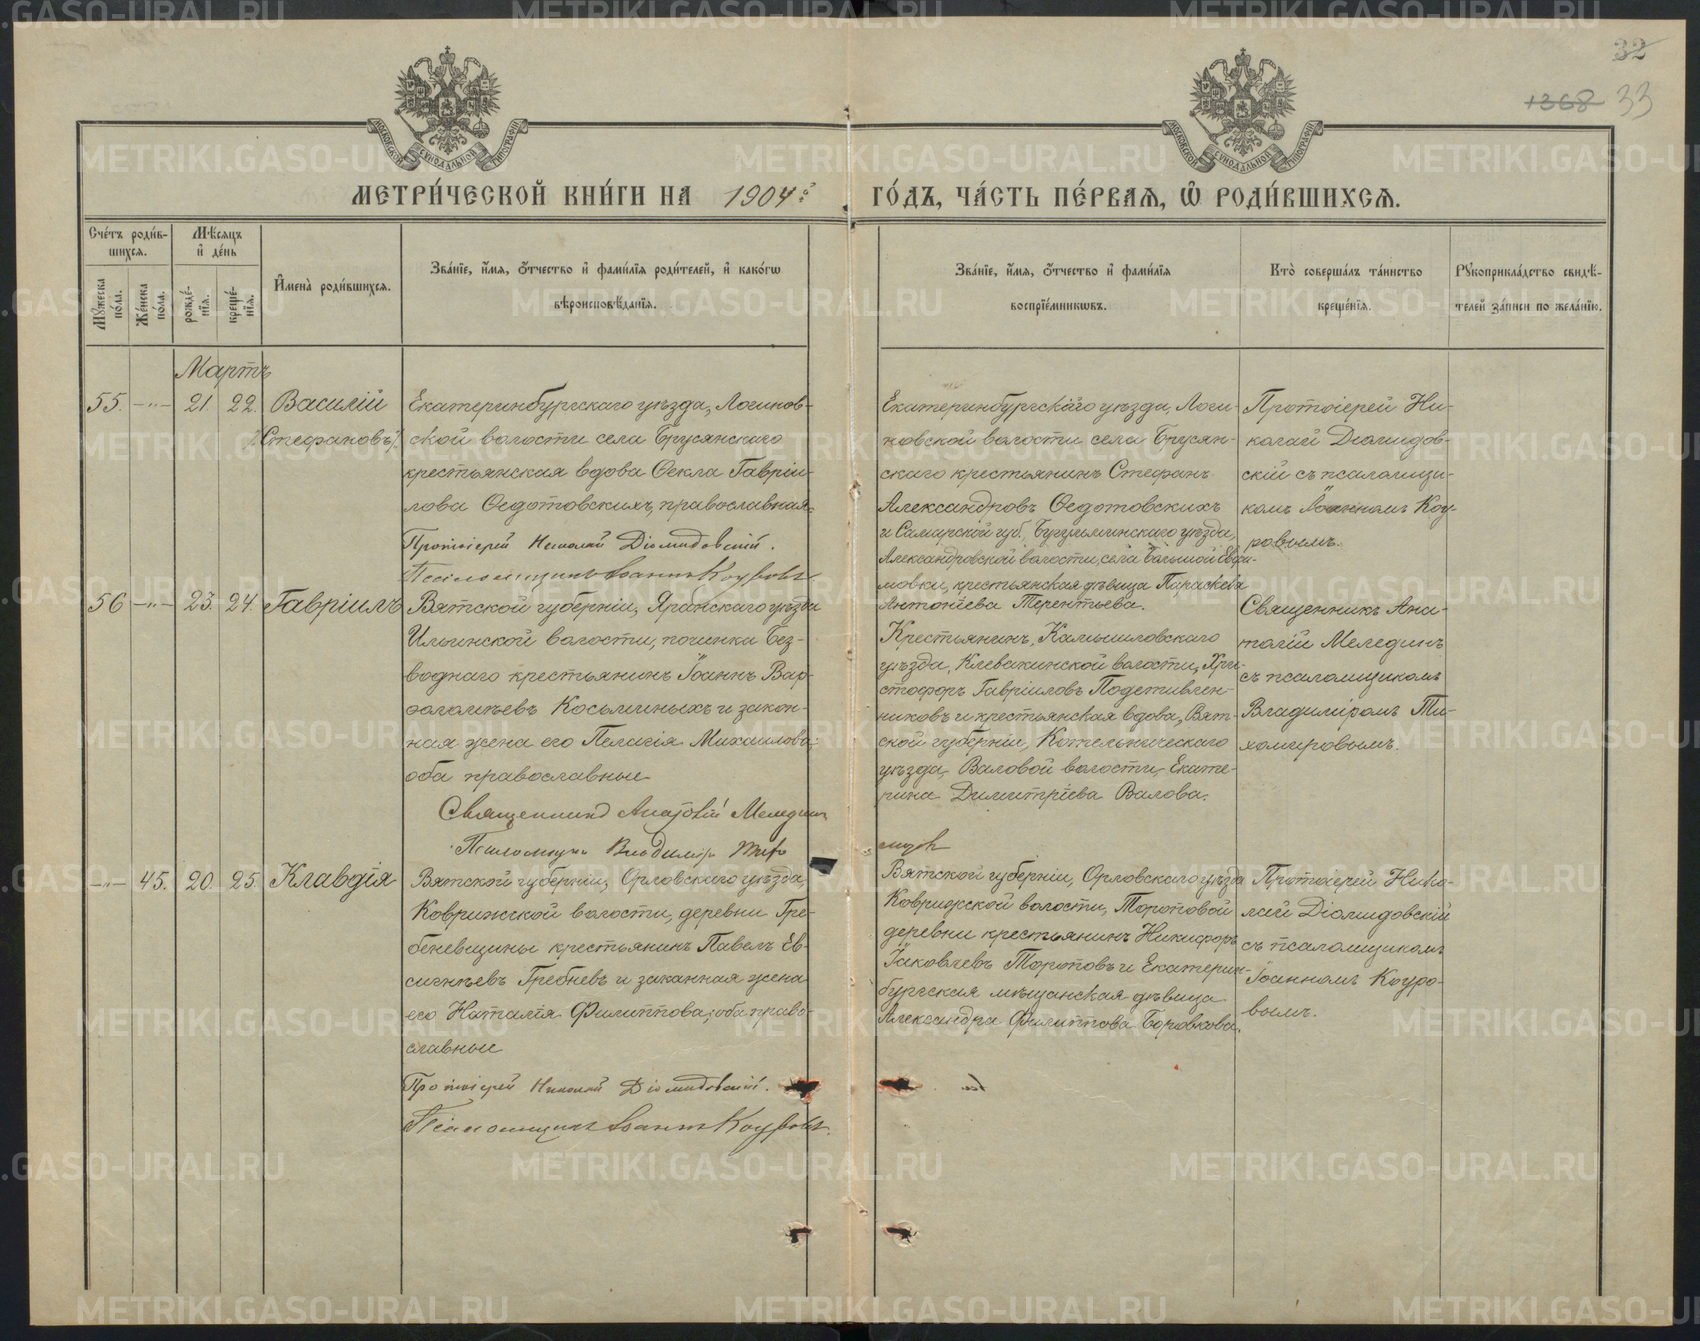 32
1368 33
МОСКОВСКОЙ СѴНОДАЛЬНОЙ ТИПОГРАФІИ
МОСКОВСКОЙ СѴНОДАЛЬНОЙ ТИПОГРАФІИ
МЕТРИ́ЧЕСКОЙ КНИ́ГИ НА 1904 г. ГО́ДЪ, ЧА́СТЬ ПЕ́РВАЯ, Ѡ РОДИ́ВШИХСЯ.
Сче́тъ роди́в-
шихся.
Му́жеска по́ла.
Же́нска по́ла.
Мѣ́сяцъ
и де́нь
рожде́-
нїя.
креще́-
нїя.
Имена̀ роди́вшихся.
Зва́нїе, и́мя, о́тчество и фами́лїя роди́телей, и како́гѡ
вѣроисповѣ́данїя.
Зва́нїе, и́мя, о́тчество и фами́лїя
воспрїе́мникѡвъ.
Кто̀ соверша́лъ та́инство
креще́нїя.
Рꙋкоприкла́дство свидѣ́-
телей за́писи по жела́нїю.
Мартъ
55. —„— 21 22. Василій
(Стефановъ).
Екатеринбургскаго уѣзда, Логинов-
ской волости села Брусянскаго
крестьянская вдова Ѳекла Гаврiи-
лова Ѳедотовскихъ, православная.
Протоіерей Николай Діомидовскій.
Псаломщикъ Іоаннъ Коуровъ
Екатеринбургскаго уѣзда, Логи-
новской волости села Брусян-
скаго крестьянинъ Стефанъ
Александровъ Ѳедотовскихъ
и Самарской губ., Бугульминскаго уѣзда,
Александровской волости, села Большой Ефи-
мовки, крестьянская дѣвица Параскева
Антоніева Терентьева.
Протоіерей Ни-
колай Діомидов-
скій съ псаломщи-
комъ Іоанномъ Коу-
ровымъ.
56 —„— 23. 24. Гавріилъ
Вятской губерніи, Яранскаго уѣзда
Ильинской волости, починка Без-
воднаго крестьянинъ Іоаннъ Вар-
ѳоломѣевъ Косьминыхъ и закон-
ная жена его Пелагія Михаилова,
оба православные
Священникъ Анатолій Мелединъ
Псаломщикъ Владиміръ Тих
Крестьянинъ, Камышловскаго
уѣзда, Клевакинской волости, Хри-
стофоръ Гавріиловъ Подсѣтиплен-
никовъ и крестьянская вдова, Вят-
ской губерніи, Котельническаго
уѣзда, Валовой волости, Екате-
рина Димитріева Валова.
Священникъ Ана-
толій Мелединъ
съ псаломщикомъ
Владиміромъ Ти-
хомировымъ.
—„— 45. 20. 25. Клавдія
Вятской губерніи, Орловскаго уѣзда,
Коврижской волости, деревни Гре-
беневщины крестьянинъ Павелъ Ев-
сигнѣевъ Гребневъ и законная жена
его Наталія Филиппова; оба право-
славные
Протоіерей Николай Діомидовскій.
Псаломщикъ Іоаннъ Коуровъ.
Вятской губерніи, Орловскаго уѣзда
Коврижской волости, Тороповой
деревни крестьянинъ Никифоръ
Іаковлевъ Тороповъ и Екатерин-
бургская мѣщанская дѣвица
Александра Филиппова Боровкова.
Протоіерей Нико-
лай Діомидовскій
съ псаломщикомъ
Іоанномъ Коуро-
вымъ.
METRIKI.GASO-URAL.RU